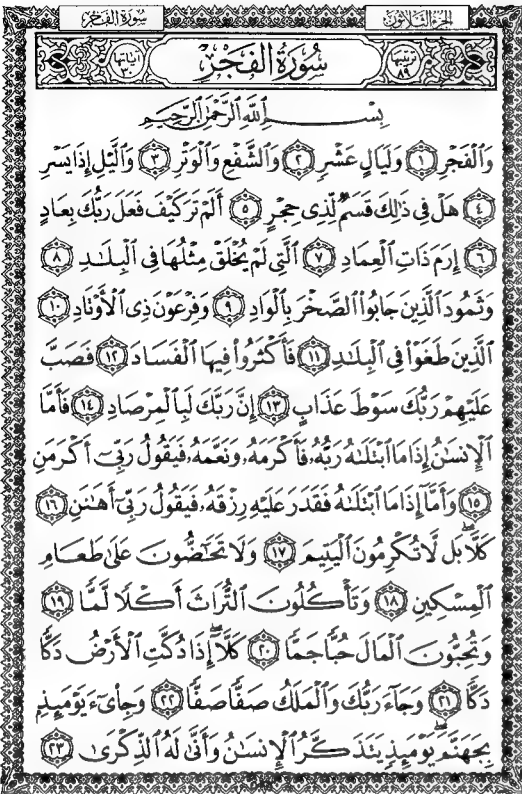 الجزء الثلاثون
سورة الفجر
ترتيبها ٨٩
سُورَةُ الفَجْرِ
آياتها ٣٠
بِسْمِ اللَّهِ الرَّحْمَٰنِ الرَّحِيمِ
وَالْفَجْرِ ۝١ وَلَيَالٍ عَشْرٍ ۝٢ وَالشَّفْعِ وَالْوَتْرِ ۝٣ وَالَّيْلِ إِذَا يَسْرِ
۝٤ هَلْ فِي ذَٰلِكَ قَسَمٌ لِّذِي حِجْرٍ ۝٥ أَلَمْ تَرَ كَيْفَ فَعَلَ رَبُّكَ بِعَادٍ
۝٦ إِرَمَ ذَاتِ الْعِمَادِ ۝٧ الَّتِي لَمْ يُخْلَقْ مِثْلُهَا فِي الْبِلَٰدِ ۝٨
وَثَمُودَ الَّذِينَ جَابُوا الصَّخْرَ بِالْوَادِ ۝٩ وَفِرْعَوْنَ ذِي الْأَوْتَادِ ۝١٠
الَّذِينَ طَغَوْا فِي الْبِلَٰدِ ۝١١ فَأَكْثَرُوا فِيهَا الْفَسَادَ ۝١٢ فَصَبَّ
عَلَيْهِمْ رَبُّكَ سَوْطَ عَذَابٍ ۝١٣ إِنَّ رَبَّكَ لَبِالْمِرْصَادِ ۝١٤ فَأَمَّا
الْإِنسَٰنُ إِذَا مَا ابْتَلَىٰهُ رَبُّهُۥ فَأَكْرَمَهُۥ وَنَعَّمَهُۥ فَيَقُولُ رَبِّيٓ أَكْرَمَنِ
۝١٥ وَأَمَّآ إِذَا مَا ابْتَلَىٰهُ فَقَدَرَ عَلَيْهِ رِزْقَهُۥ فَيَقُولُ رَبِّيٓ أَهَٰنَنِ ۝١٦
كَلَّاۖ بَل لَّا تُكْرِمُونَ الْيَتِيمَ ۝١٧ وَلَا تَحَٰٓضُّونَ عَلَىٰ طَعَامِ
الْمِسْكِينِ ۝١٨ وَتَأْكُلُونَ التُّرَاثَ أَكْلًا لَّمًّا ۝١٩
وَتُحِبُّونَ الْمَالَ حُبًّا جَمًّا ۝٢٠ كَلَّاۖ إِذَا دُكَّتِ الْأَرْضُ دَكًّا
دَكًّا ۝٢١ وَجَآءَ رَبُّكَ وَالْمَلَكُ صَفًّا صَفًّا ۝٢٢ وَجِا۟يٓءَ يَوْمَئِذٍۭ
بِجَهَنَّمَۚ يَوْمَئِذٍ يَتَذَكَّرُ الْإِنسَٰنُ وَأَنَّىٰ لَهُ الذِّكْرَىٰ ۝٢٣